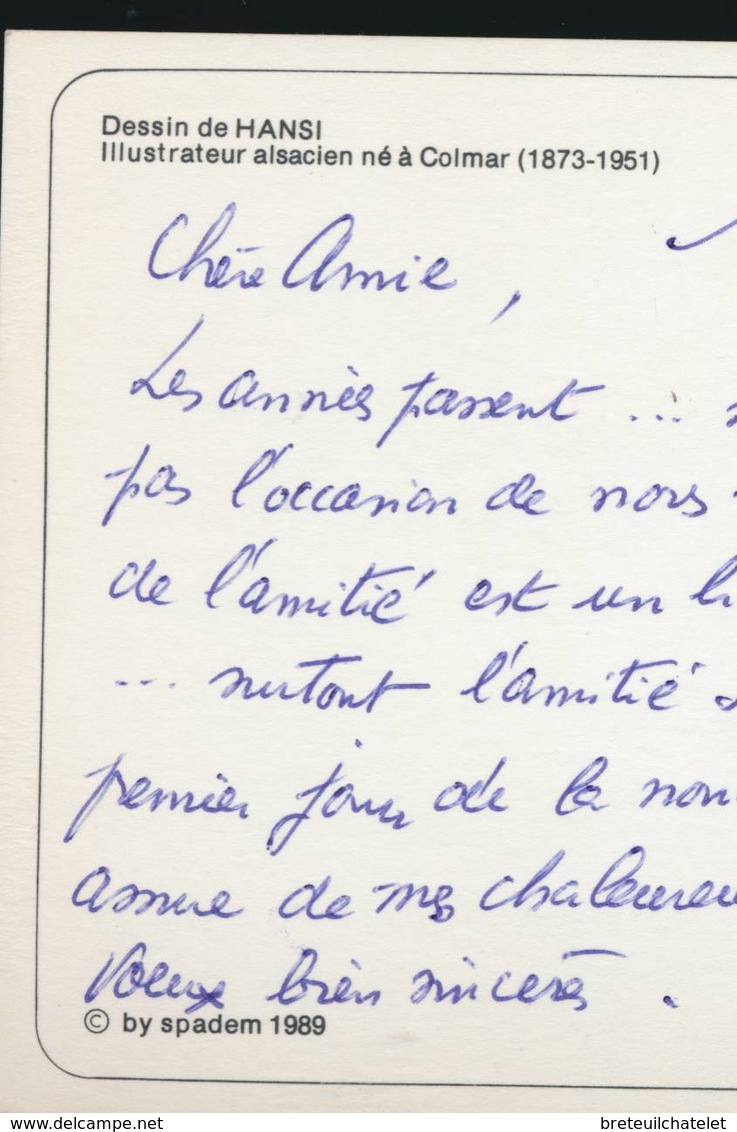 Dessin de HANSI
Illustrateur alsacien né à Colmar (1873-1951)
Chère Amie,
Les années passent ...
pas l'occasion de nous
de l'amitié est un
... surtout l'amitié
premier jour de la
assure de mes
Voeux bien sincères.
© by spadem 1989
www.delcampe.net
breteuilchatelet